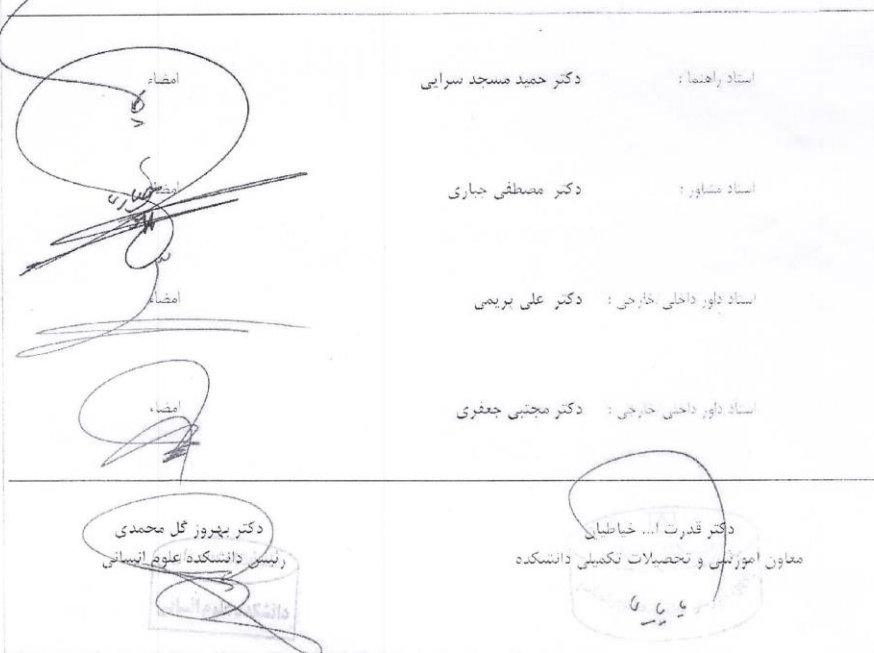 استاد راهنما : دکتر حمید مسجد سرایی امضاء
استاد مشاور : دکتر مصطفی جباری امضاء
استاد داور داخلی/خارجی : دکتر علی پریمی امضاء
استاد داور داخلی/خارجی : دکتر مجتبی جعفری امضاء
دکتر قدرت ا... خیاطیان
معاون آموزشی و تحصیلات تکمیلی دانشکده
دکتر بهروز گل محمدی
رئیس دانشکده علوم انسانی